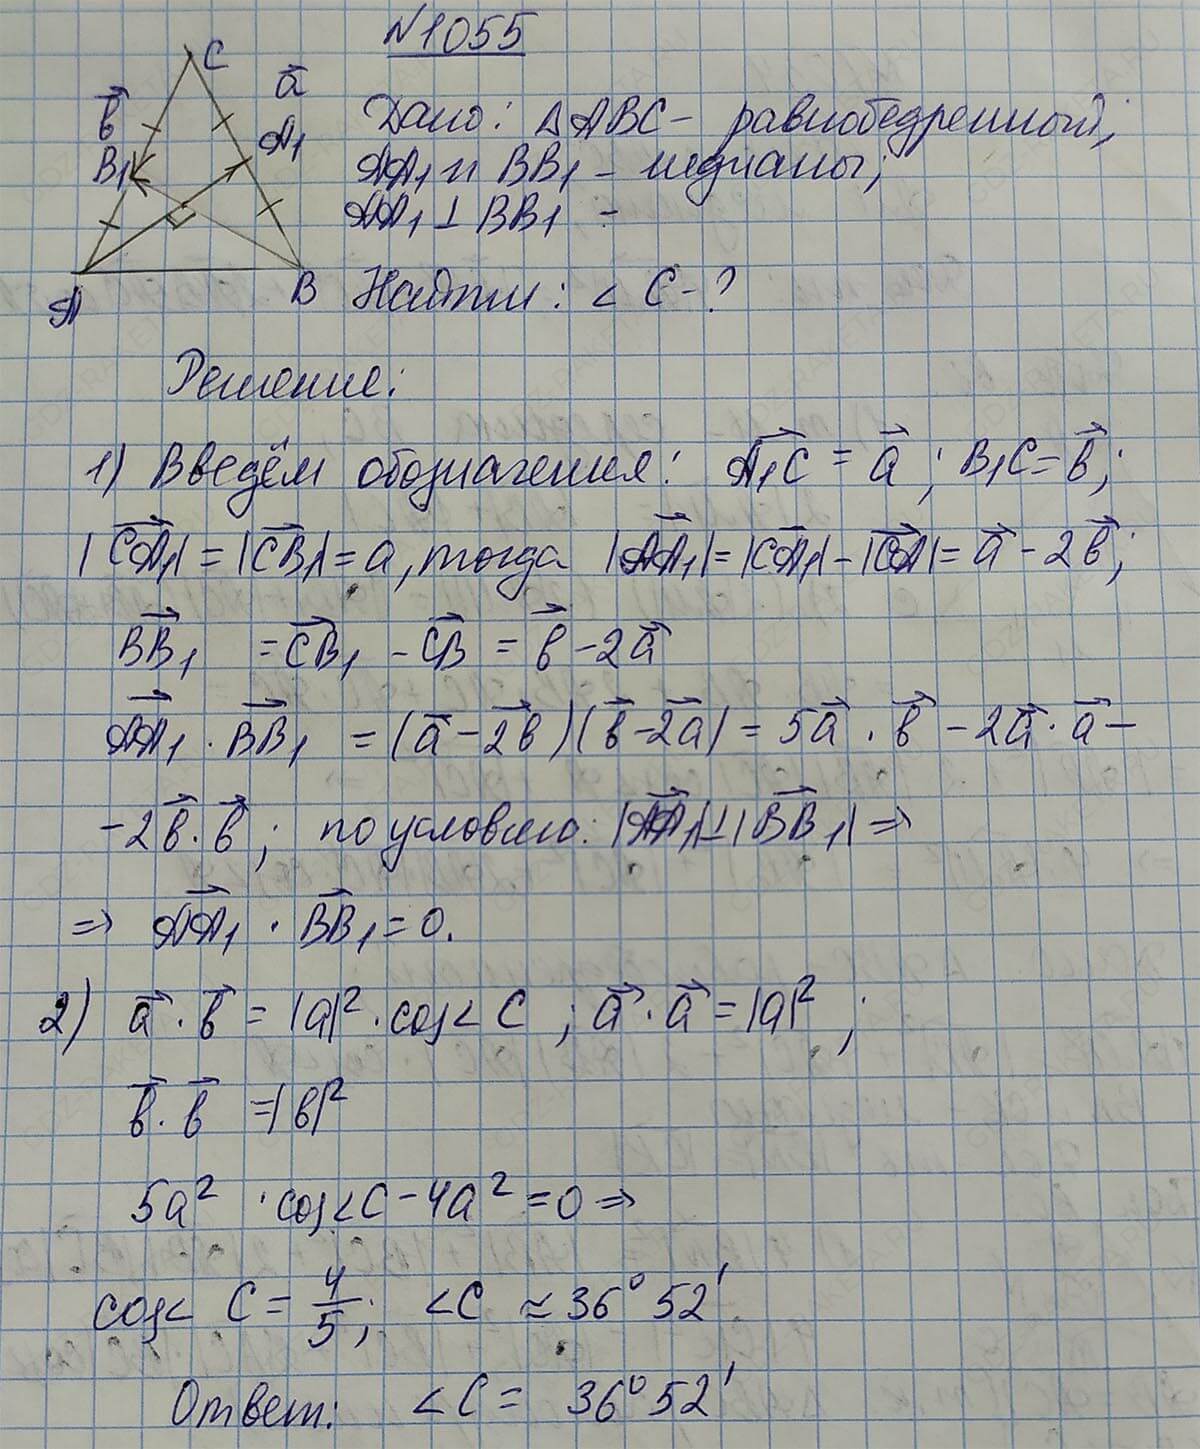 №1055
C
a⃗
b⃗
A₁
B₁
A
B
Дано: △ABC - равнобедренный;
AA₁ и BB₁ - медианы;
AA₁ ⊥ BB₁ -
Найти: ∠ C - ?
Решение:
1) Введём обозначения: A₁C⃗ = a⃗; B₁C = b⃗;
|CA₁⃗| = |CB₁⃗| = a, тогда |AA₁⃗| = |CA₁⃗| - |CA⃗| = a⃗ - 2b⃗;
BB₁⃗ = CB₁⃗ - CB⃗ = b⃗ - 2a⃗
AA₁⃗ · BB₁⃗ = (a⃗ - 2b⃗)(b⃗ - 2a⃗) = 5a⃗ · b⃗ - 2a⃗ · a⃗ -
- 2b⃗ · b⃗; по условию: |AA₁⃗| ⊥ |BB₁⃗| ⇒
⇒ AA₁⃗ · BB₁⃗ = 0.
2) a⃗ · b⃗ = |a|² · cos∠ C; a⃗ · a⃗ = |a|²;
b⃗ · b⃗ = |b|²
5a² · cos∠C - 4a² = 0 ⇒
cos∠ C = 4/5; ∠C ≈ 36° 52'
Ответ: ∠C = 36° 52'